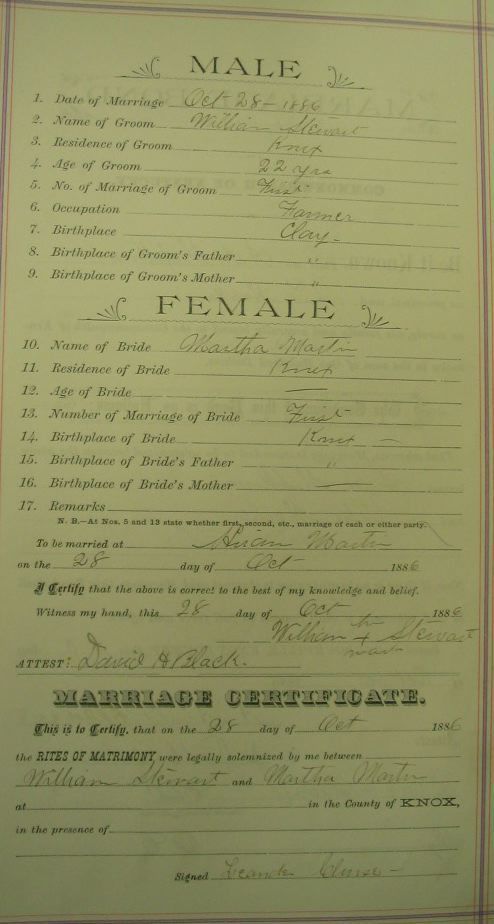 MALE
1. Date of Marriage Oct 28 - 1886
2. Name of Groom William Stewart
3. Residence of Groom Knox
4. Age of Groom 22 yrs
5. No. of Marriage of Groom First
6. Occupation Farmer
7. Birthplace Clay -
8. Birthplace of Groom's Father "
9. Birthplace of Groom's Mother "
FEMALE
10. Name of Bride Martha Martin
11. Residence of Bride Knox
12. Age of Bride
13. Number of Marriage of Bride First
14. Birthplace of Bride Knox —
15. Birthplace of Bride's Father "
16. Birthplace of Bride's Mother —
17. Remarks
N. B.—At Nos. 5 and 13 state whether first, second, etc., marriage of each or either party.
To be married at Hiram Martin
on the 28 day of Oct 1886
I Certify that the above is correct to the best of my knowledge and belief.
Witness my hand, this 28 day of Oct 1886
his
William + Stewart
mark
ATTEST: David H Black.
MARRIAGE CERTIFICATE.
This is to Certify, that on the 28 day of Oct 1886
the RITES OF MATRIMONY, were legally solemnized by me between
William Stewart and Martha Martin
at in the County of KNOX,
in the presence of
Signed